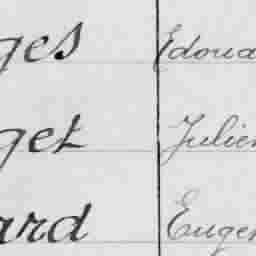 ges Edoua
get Julien
ard Eugen